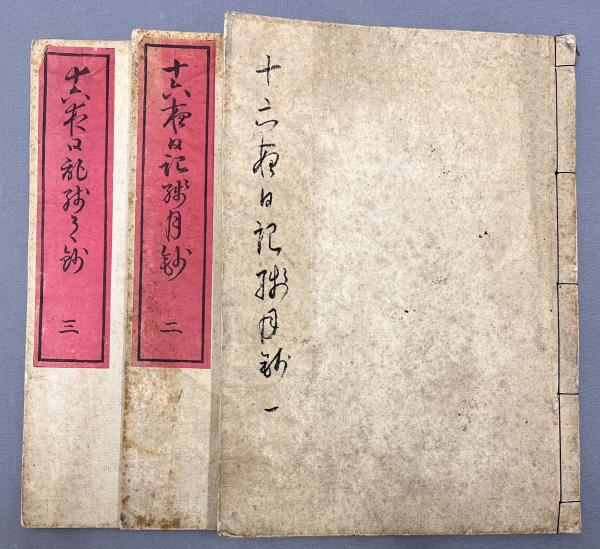 十六夜日記残月鈔 一
十六夜日記残月鈔 二
十六夜日記残月鈔 三